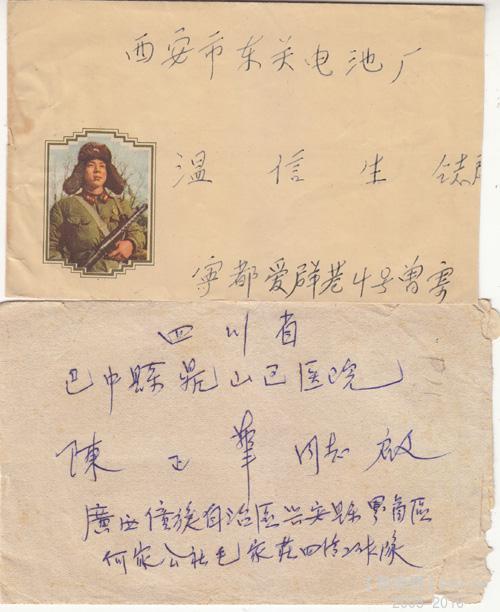 西安市东关电池厂
温信生
宁都爱群巷4号曾寄
四川省
巴中縣鼎山区医院
陳正華同志啟
廣西僮族自治区兴安縣界首區
何家公社毛家莊四清工作隊
2003-2016